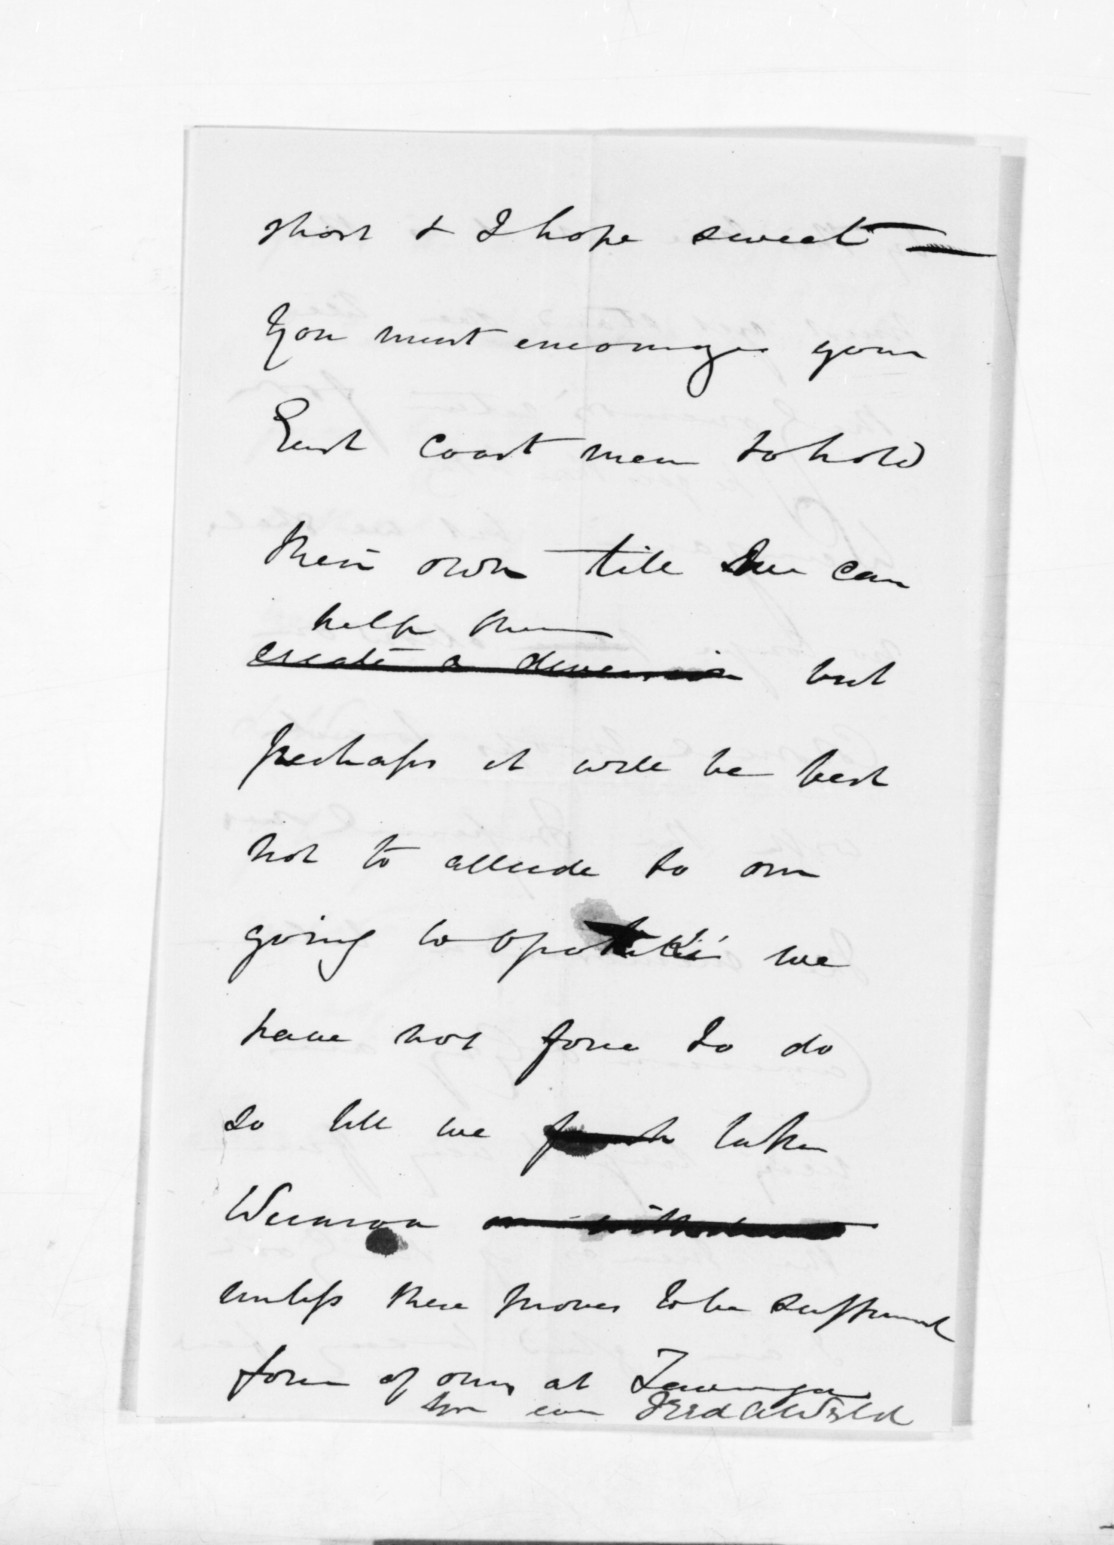 short & I hope sweet —
You must encourage your
East coast men to hold
their own till we can
help them
create a diversion but
perhaps it will be best
not to allude to our
going to Opotiki we
have not force to do
so till we take
Weraroa
unless there proves to be sufficient
force of ours at Tauranga
Yrs ever Fred A Weld